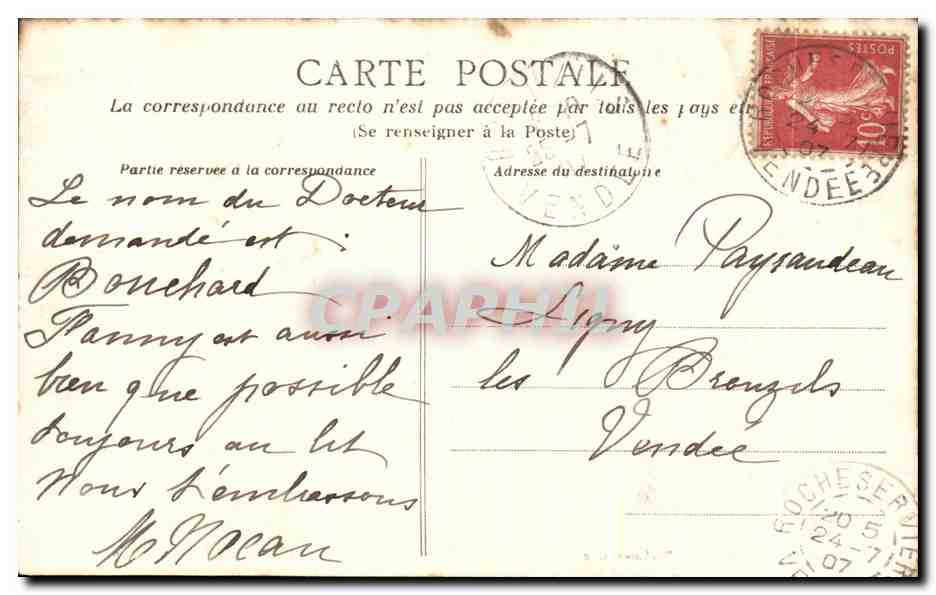 CARTE POSTALE
La correspondance au recto n'est pas acceptée par tous les pays
(Se renseigner à la Poste)
Partie réservée à la correspondance
Adresse du destinataire
Le nom du Docteur
demandé est :
Bouchard
Fanny est aussi
bien que possible
toujours au lit
Nous t'embrassons
Madame Paysaudeau
Ligny
les Brouzils
Vendée
REPUBLIQUE FRANÇAISE
POSTES
10 c
24
07
VENDÉE
25 -7
VENDEE
ROCHESERVIERE
20 5
24 -7
07
CPARHU